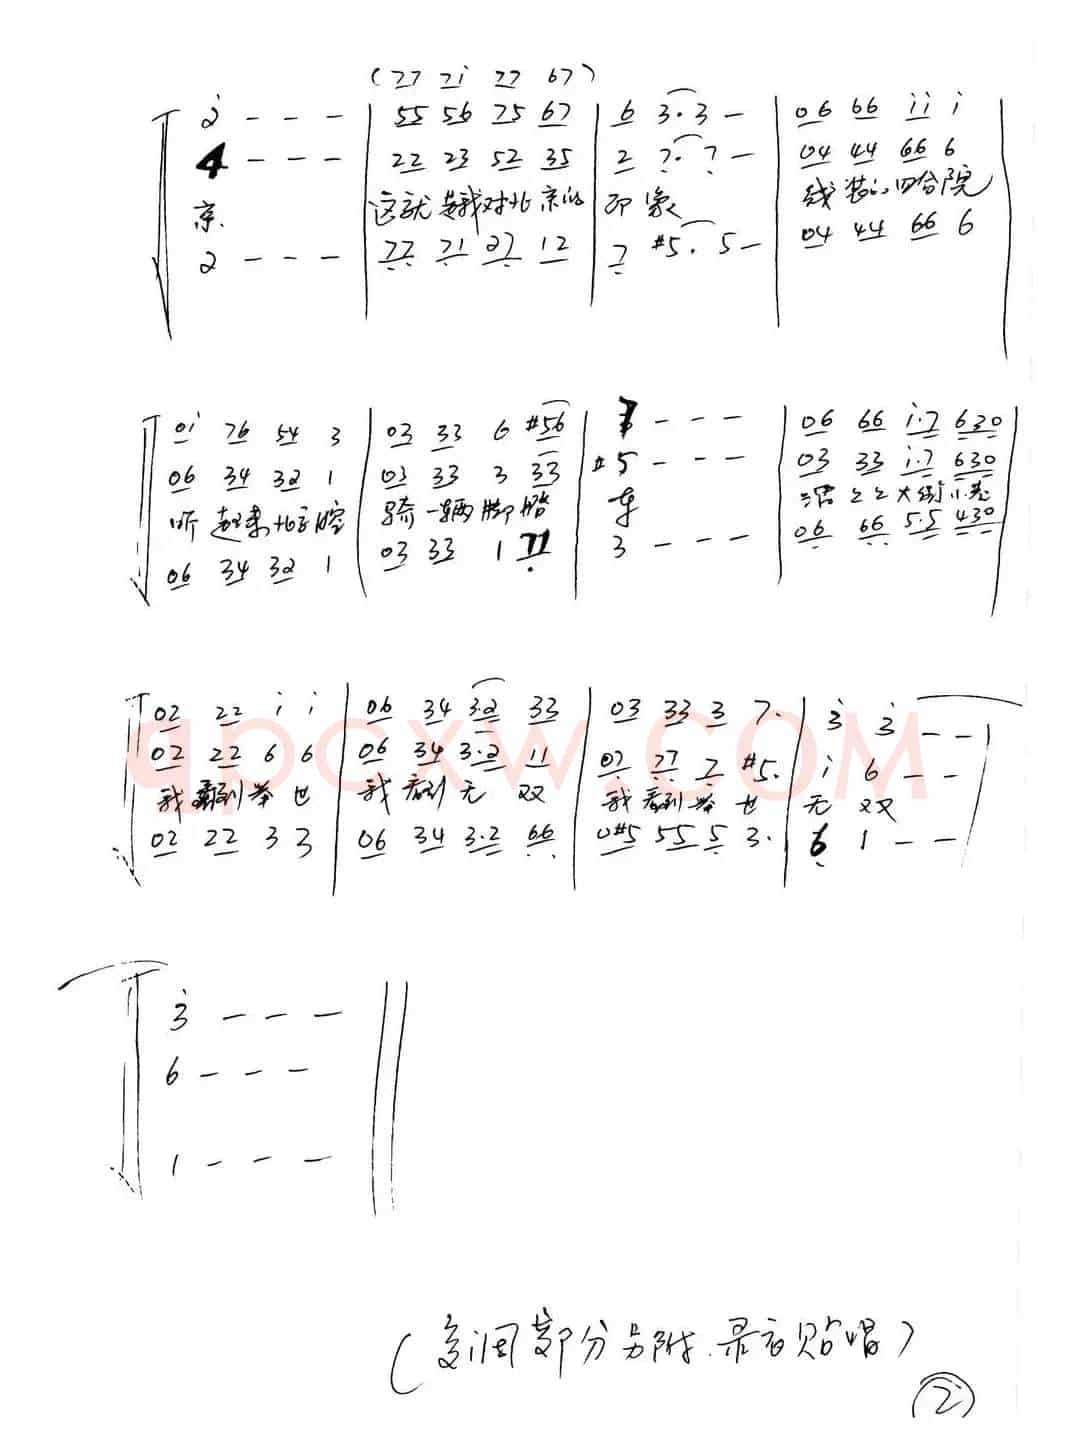 (77 7i 77 67)
2̇ - - - | 55 56 75 67 | 6 3·3 - | 06 66 ii i
4 - - - | 22 23 52 35 | 2 7·7 - | 04 44 66 6
京 这就是我对北京的 印象 线装的四合院
2 - - - | 77 71 27 12 | 7 #5·5 - | 04 44 66 6
0i 76 54 3 | 03 33 6 #56 | 7 - - - | 06 66 i·7 630
06 34 32 1 | 03 33 3 33 | #5 - - - | 03 33 i·7 630
听起来北京腔 骑一辆脚踏 车 大街小巷
06 34 32 1 | 03 33 1 77 | 3 - - - | 06 66 5·5 430
02 22 i i | 06 34 3·2 33 | 03 33 3 7· | 3̇ 3̇ - -
02 22 6 6 | 06 34 3·2 11 | 07 77 7 #5· | i 6 - -
我看到举世 我看到无双 我看到举世 无双
02 22 3 3 | 06 34 3·2 66 | 0#5 55 5 3· | 6 1 - -
3̇ - - -
6 - - -
1 - - -
(复调部分另附.录音贴唱)
②
qpcxw.COM